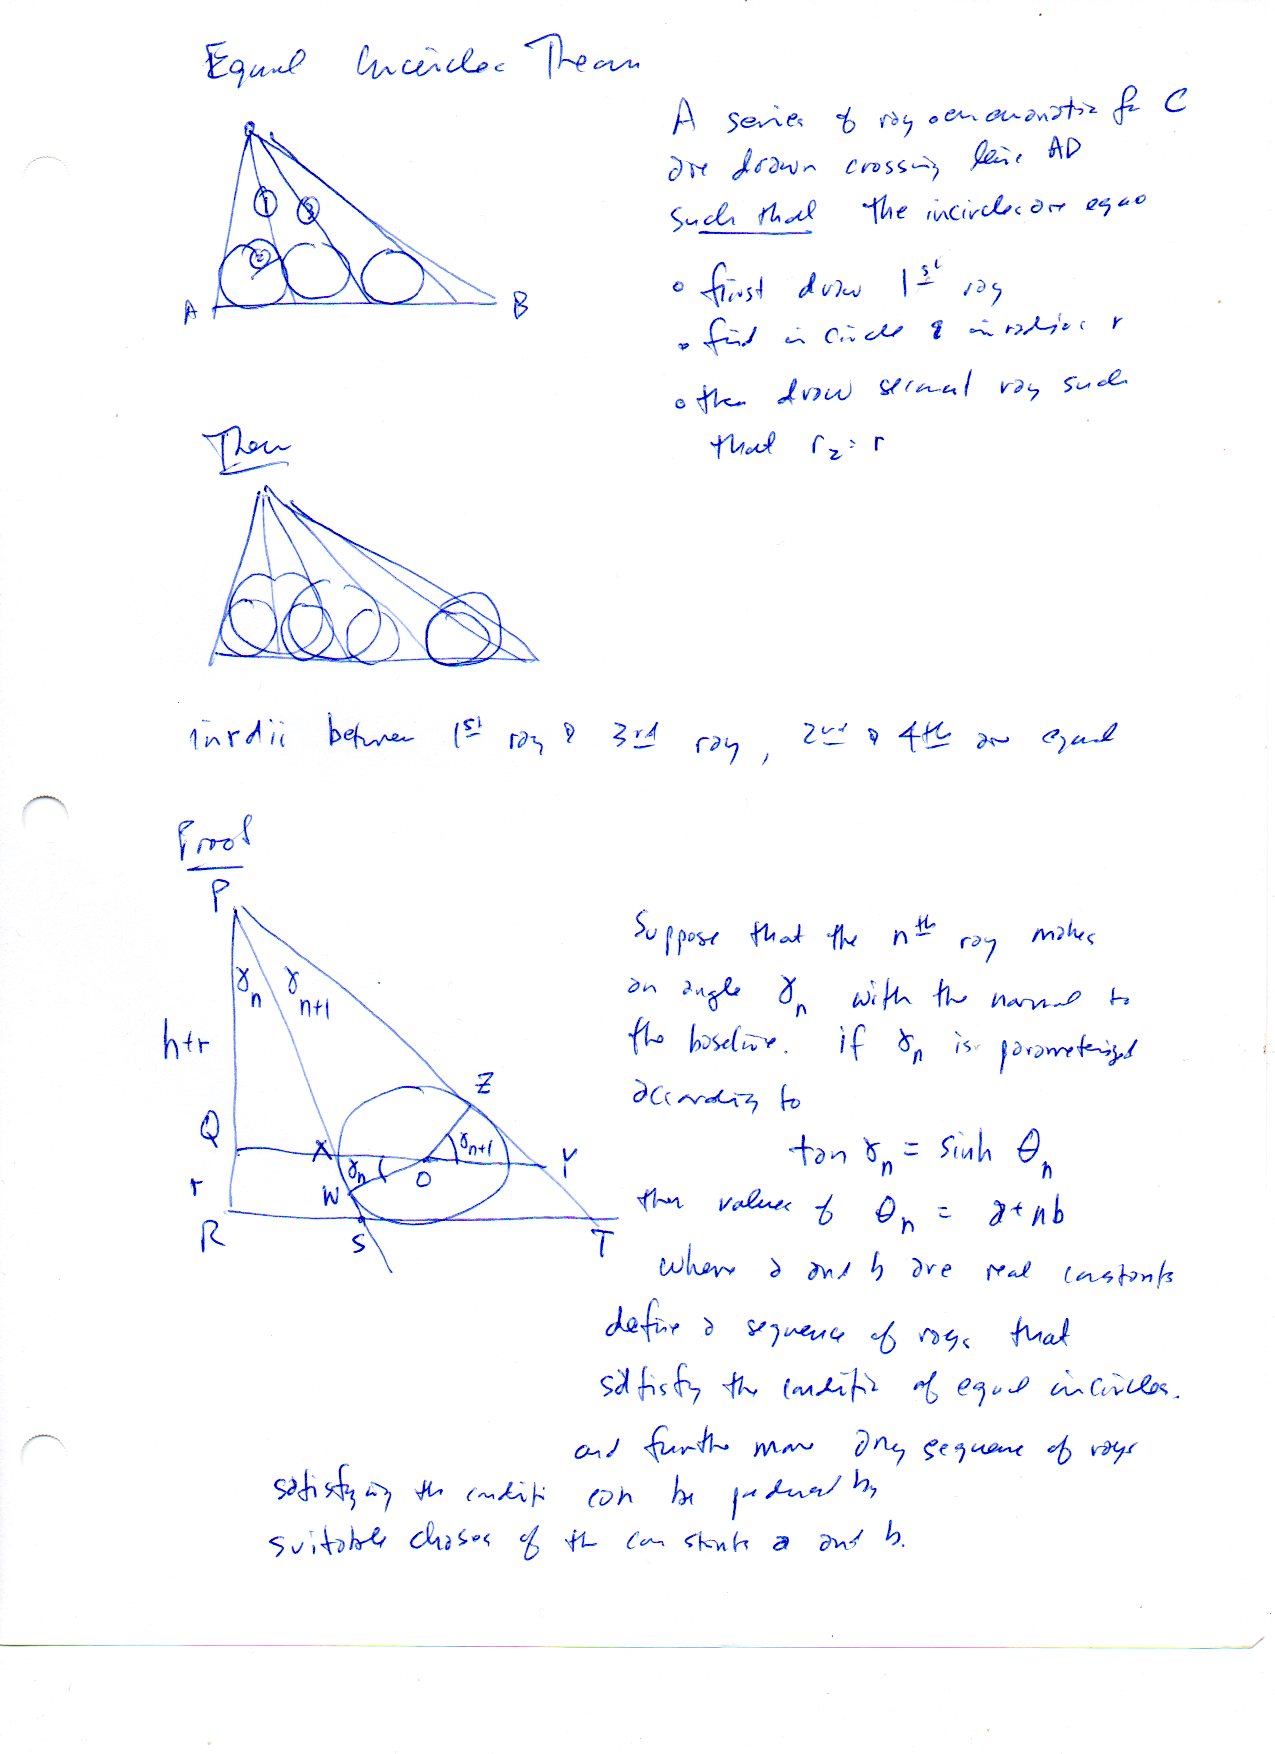 Equal Incircles Theorem
A series of rays emanating C
are drawn crossing line AD
such that the incircles are equal
• first draw 1st ray
• find in circle & inradius r
• then draw second ray such
that r2 = r
1
2
3
A
B
Then
inrdii between 1st ray & 3rd ray, 2nd & 4th are equal
Proof
P
γn γn+1
h+r
Q
X
Z
γn+1
Y
O
γn
W
r
R
S
T
Suppose that the nth ray makes
an angle γn with the normal to
the baseline. if γn is parameterized
according to
tan γn = sinh θn
then values of θn = a + nb
where a and b are real constants
define a sequence of rays that
satisfy the condition of equal incircles.
and further more any sequence of rays
satisfying the condition can be produced by
suitable choses of the constants a and b.